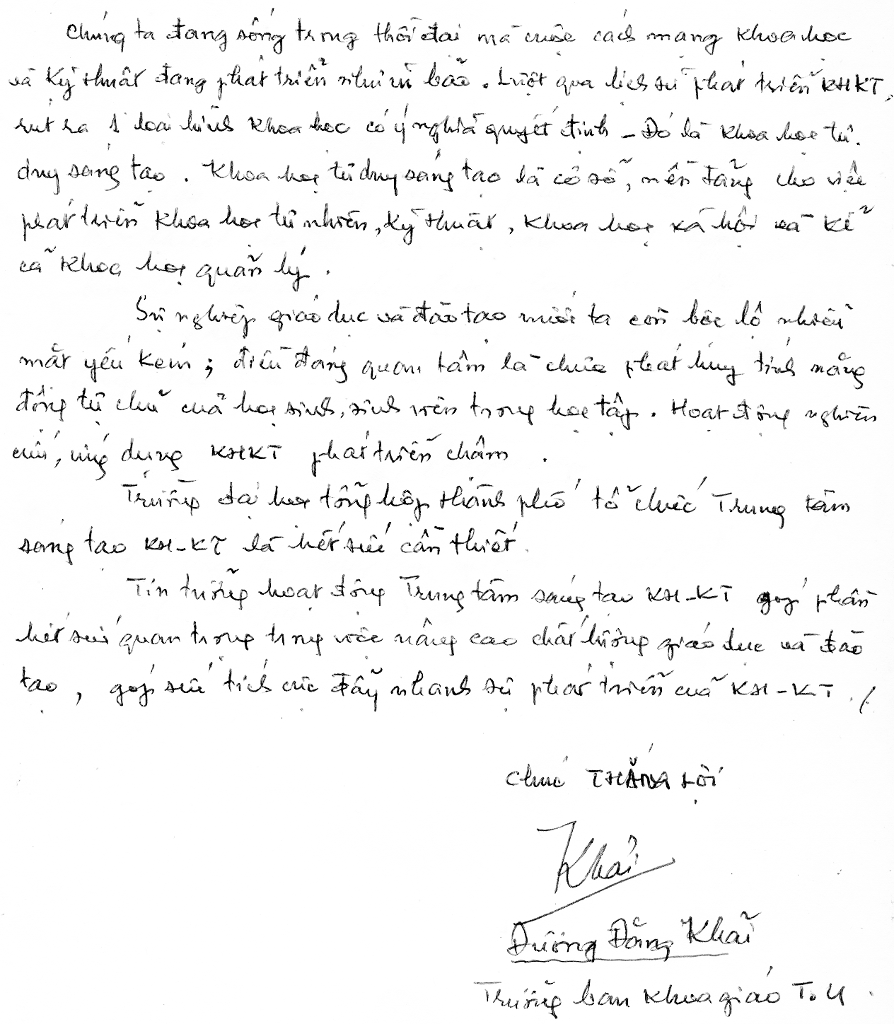 Chúng ta đang sống trong thời đại mà cuộc cách mạng khoa học
và kỹ thuật đang phát triển như vũ bão. Lướt qua lịch sử phát triển KHKT,
rút ra 1 loại hình khoa học có ý nghĩa quyết định - Đó là khoa học tư
duy sáng tạo. Khoa học tư duy sáng tạo là cơ sở, nền tảng cho việc
phát triển khoa học tự nhiên, kỹ thuật, khoa học xã hội và kể
cả khoa học quản lý.
Sự nghiệp giáo dục và đào tạo nước ta còn bộc lộ nhiều
mặt yếu kém; điều đáng quan tâm là chưa phát huy tính năng
động tự chủ của học sinh, sinh viên trong học tập. Hoạt động nghiên
cứu, ứng dụng KHKT phát triển chậm.
Trường đại học tổng hợp thành phố tổ chức Trung tâm
sáng tạo KH-KT là hết sức cần thiết.
Tin tưởng hoạt động Trung tâm sáng tạo KH-KT góp phần
hết sức quan trọng trong việc nâng cao chất lượng giáo dục và đào
tạo, góp sức tích cực đẩy nhanh sự phát triển của KH-KT./
Chúc THẮNG LỢI
Khải
Dương Đăng Khải
Trưởng ban khoa giáo T.U.